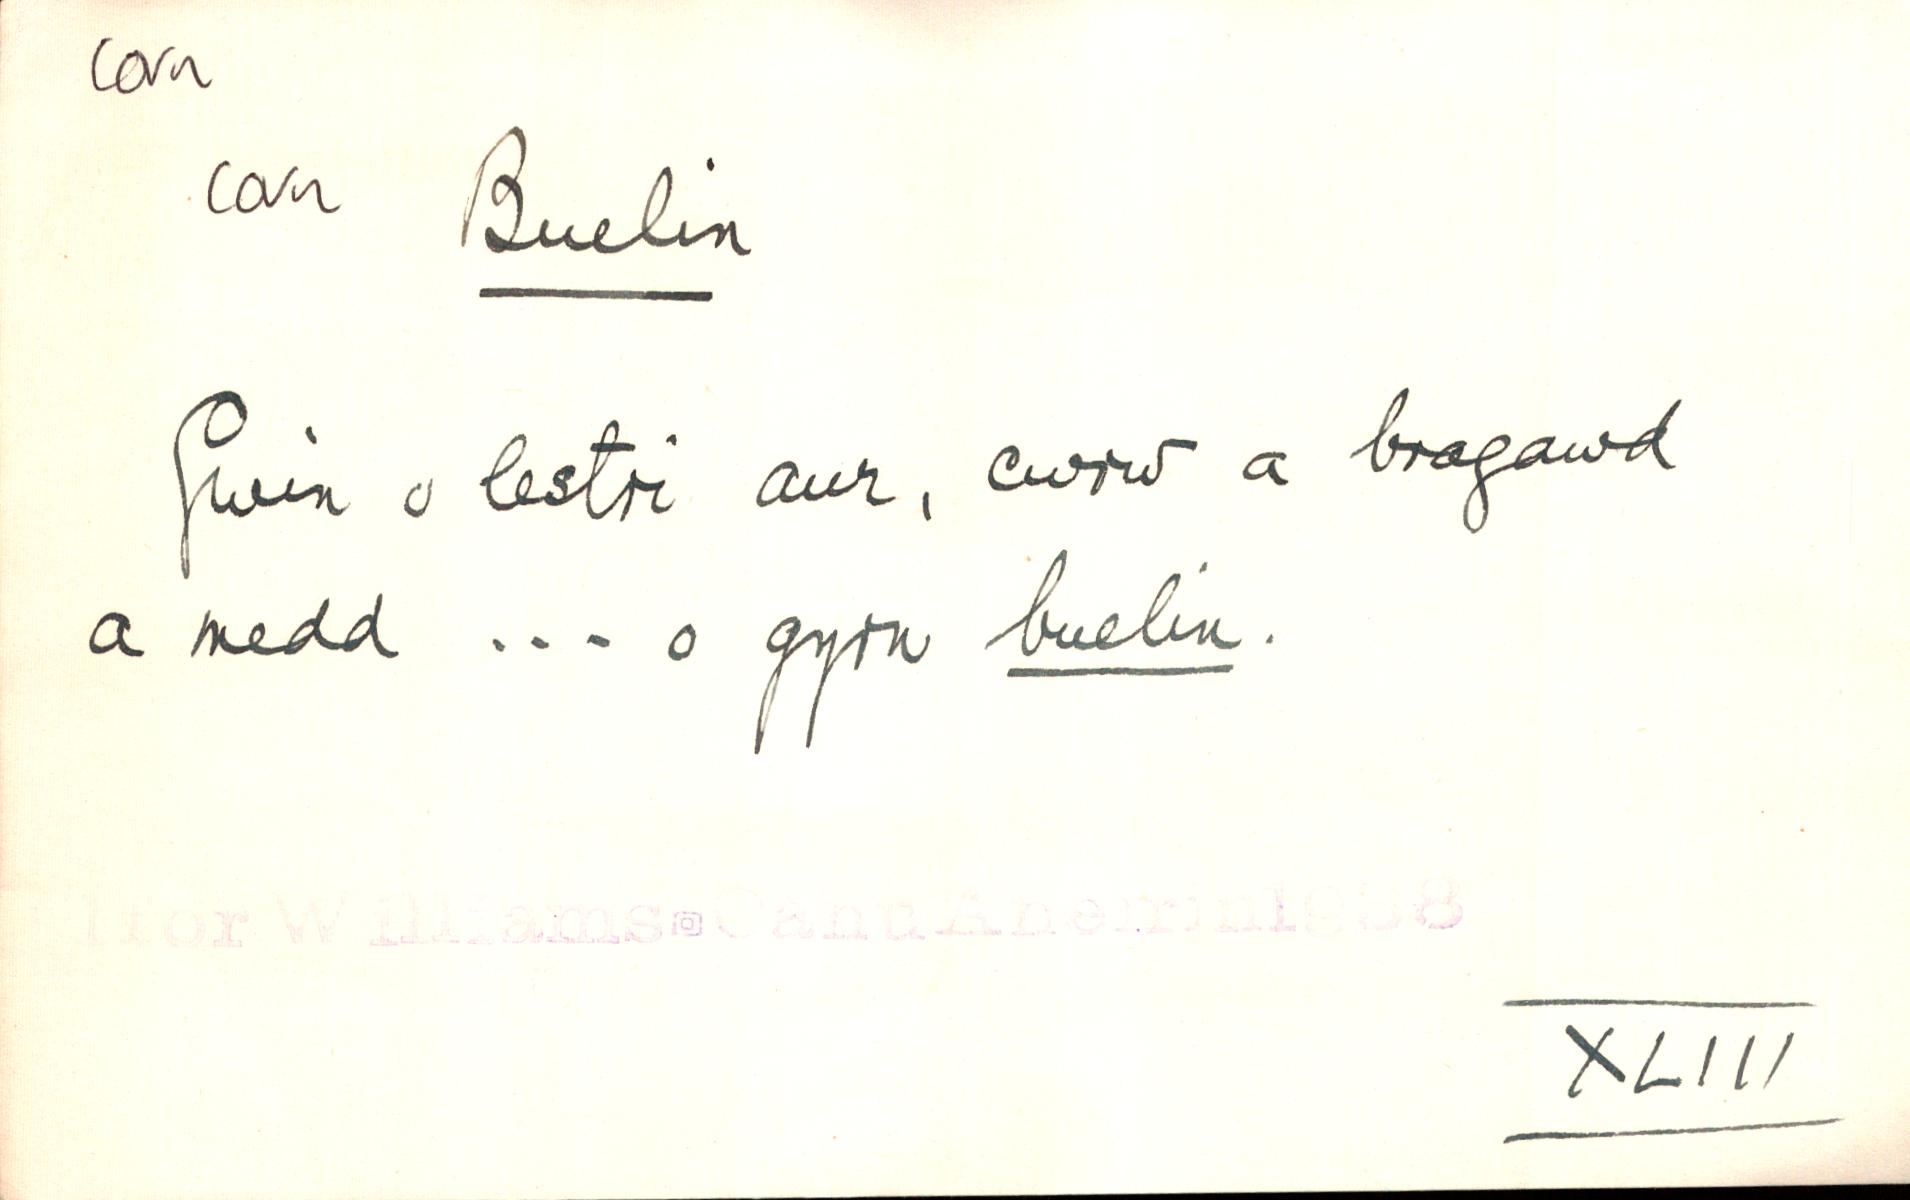 corn
corn Buelin
Gwin o lestri aur, cwrw a bragawd
a medd ... o gyrn buelin.
Ifor Williams Canu Aneirin 1938
XLIII